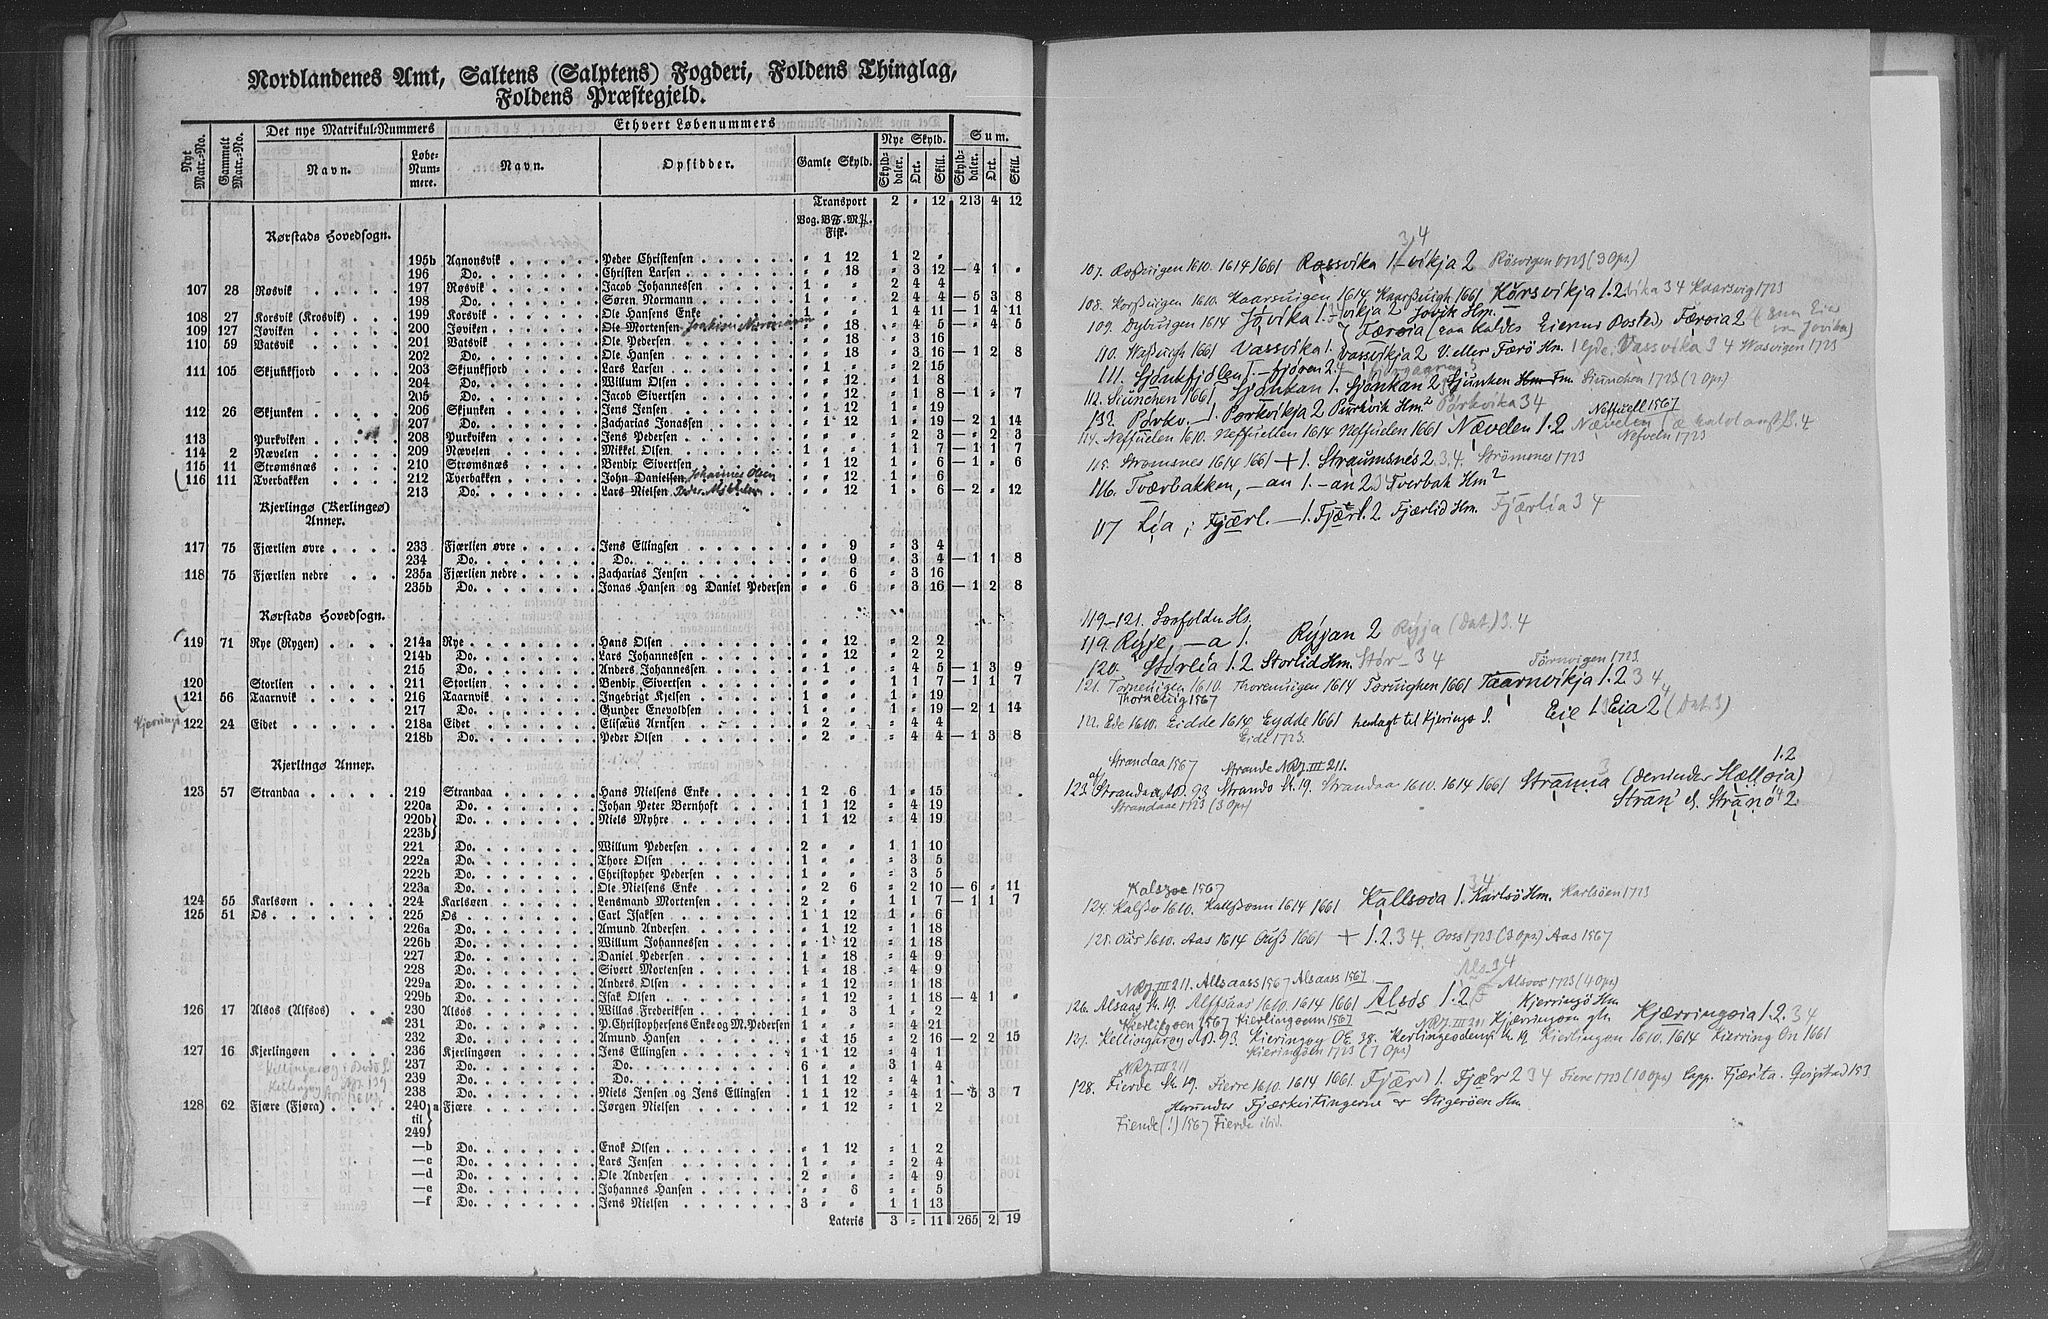 Nordlandenes Amt, Saltens (Salptens) Fogderi, Foldens Thinglag,
Foldens Præstegjeld.
Nyt Matr.-No. Gammelt Matr.-No. Det nye Matrikul-Nummers Ethvert Løbenummers Sum.
Navn. Løbe-Nummere. Navn. Opsidder. Gamle Skyld. Nye Skyld.
Skylddaler. Ort. Skill. Skylddaler. Ort. Skill.
Transport 2 " 12 213 4 12
Vog. B℔. M℔.
Fisk.
Rørstads Hovedsogn.
195b Agnonsvik Peder Christensen " 1 12 1 2 "
196 Do. Christen Larsen " " 18 " 3 12 — 4 1 "
107 28 Røsvik 197 Røsvik Jacob Johannessen 1 " " 2 4 4
198 Do. Søren Normann 1 " " 2 4 4 — 5 3 8
108 27 Korsvik (Krosvik) 199 Korsvik Ole Hansens Enke 1 " " 1 4 11 — 1 4 11
109 127 Jøviken 200 Jøviken Ole Mortensen Joakim Normann " " 18 " 4 5 — " 4 5
110 59 Vatsvik 201 Vatsvik Ole Pedersen " " 18 " 3 16
202 Do. Ole Hansen " " 18 " 3 16 — 1 2 8
111 105 Skjunkfjord 203 Skjunkfjord Lars Larsen " 1 " " 2 15
204 Do. Willum Olsen " " 12 " 1 8
205 Do. Jacob Sivertsen " " 12 " 1 8 — 1 " 7
112 26 Skjunken 206 Skjunken Jens Jensen " 1 12 1 " 19
207 Do. Zacharias Jonassen " 1 12 1 " 19 — 2 1 14
113 Purkviken 208 Purkviken Jens Pedersen " " " " 2 3 — " 2 3
114 2 Nævelen 209 Nævelen Mikkel Olsen 1 " " 1 1 7 — 1 1 7
115 11 Strømsnæs 210 Strømsnæs Bendix Sivertsen " 1 12 1 " 6 — 1 " 6
116 111 Tverbakken 212 Tverbakken John Danielsen Johannes Olsen " " 12 1 " 6
213 Do. Lars Nielsen " " 12 1 " 6 — 2 " 12
Kjerlingø (Kerlingeø)
Annex.
117 75 Fjærlien øvre 233 Fjærlien øvre Jens Ellingsen " " 9 " 3 4
234 Do. Do. " " 9 " 3 4 — 1 1 8
118 75 Fjærlien nedre 235a Fjærlien nedre Zacharias Jensen " " 6 " 3 16
235b Do. Jonas Hansen og Daniel Pedersen " " 6 " 3 16 — 1 2 8
Rørstads Hovedsogn.
119 71 Rye (Rygen) 214a Rye Hans Olsen " " 12 " 2 2
214b Do. Lars Johannessen " " 12 " 2 2
215 Do. Anders Johannessen " 1 " " 4 5 — 1 3 9
120 Storlien 211 Storlien Bendix Sivertsen " " " 1 1 7 — 1 1 7
121 56 Taarnvik 216 Taarnvik Ingebrigt Kjelsen 1 " " 1 " 19
217 Do. Gunder Enevoldsen 1 " " 1 " 19 — 2 1 14
Kjerringø 122 24 Eidet 218a Eidet Elisæus Arntsen " 2 " " 4 4
218b Do. Peder Olsen " 2 " " 4 4 — 1 3 8
Kjerlingø Annex.
123 57 Strandaa 219 Strandaa Hans Nielsens Enke 1 2 6 1 " 15
220a Do. Johan Peter Bernhoft 1 1 12 " 4 19
220b} Do. Niels Myhre 1 1 12 " 4 19
223b}
221 Do. Willum Pedersen 2 " " 1 1 10
222a Do. Thore Olsen 1 " " " 3 5
222b Do. Christopher Pedersen 1 " " " 3 5
223a Do. Ole Nielsens Enke " 2 6 " 2 10 — 6 " 11
124 55 Karlsøen 224 Karlsøen Lensmand Mortensen 2 " " 1 1 7 — 1 1 7
125 51 Os 225 Os Carl Isaksen 1 1 12 1 " 6
226a Do. Amund Andersen " 1 12 " 1 18
226b Do. Willum Johannessen " 1 12 " 1 18
227 Do. Daniel Pedersen 1 " 18 " 4 9
228 Do. Sivert Mortensen 1 " 18 " 4 9
229a Do. Anders Olsen " 1 12 " 1 18
229b Do. Isak Olsen " 1 12 " 1 18 — 4 1 "
126 17 Alsos (Alfsos) 230 Alsos Willas Frederiksen 1 " 3 1 " 2
231 Do. P. Christophersens Enke og M. Pedersen 1 " " " 4 21
232 Do. Amund Hansen " 1 15 " 2 16 — 2 2 15
127 16 Kjerlingøen 236 Kjerlingøen Jens Ellingsen 1 1 12 " 4 1
237 Do. Do. 6 " " 3 1 4
239 Do. Do. 1 1 12 " 4 1
238 Do. Niels Jensen og Jens Ellingsen 1 1 12 " 4 1 — 5 3 7
128 62 Fjære (Fjøra) 240}a Fjære Jørgen Nielsen " 1 12 " 1 2
til
249}
—b Do. Enok Olsen " 1 12 " 1 2
—c Do. Lars Jensen 1 " " " 2 4
—d Do. Ole Andersen 2 " " " 4 9
—e Do. Johannes Hansen " " 6 " " 5
—f Do. Jens Nielsen 3 " " 1 1 13
Lateris 3 " 11 265 2 19
3 4
107. Roßuigen 1610. 1614 1661 Rossvika 1. vikja 2 Rösvigen 1723 (3 Ops)
108. Korßuigen 1610. Kaarsuigen 1614 Kaarßuigh 1661 Korsvikja 1.2. vika 34 Kaarsvig 1723
109. Dybuigen 1614 Jøvika 1. vikja 2 Jövik Hm.
Færøia 2
110. Waßuigh 1661 Vassvika 1. Vassvikja 2 V. eller Færö Hm. Vassvika 34 Wasvigen 1723
111. Sjönkfjolen 1. — fjören 2.4
112. Siunchen 1661 Sjønkan 1. Sjønkan 2 Sjunken Hm. Siunchen 1723 (2 Ops)
133. Pörkv. — 1. Porkvikja 2 Purkvik Hm. Pörkvika 34
Neffuell 1567
114. Neffuelen 1610. Neffuellen 1614 Neffuelen 1661 Nævelen 1.2. Nævelen
Nefveln 1723
115. Stromsnes 1614 1661 + 1. Straumsnes 2. 3.4. Strömsnes 1723
116. Tværbakken, —an 1. —an 2 34 Tverbak Hm
117 Lia; Fjærl. — 1. Fjærl. 2 Fjærlid Hm. Fjærlia 34
119–121. Sørfolden Hm.
119. Røyje, —a 1. Röyjan 2 Röyja (Dat.) 3.4
120. Störlia 1.2 Storlid Hm. Stör— 34
Törnvigen 1723.
121. Torneuigen 1610. Thoreuuigen 1614 Toruighen 1661 Taarnvikja 1.2 3 4
Thorneuig 1567
122. Ede 1610. Eidde 1614 Eydde 1661 henlagt til Kjeringø S. Eie 1. Eia 2 (Dat. 3)
Eide 1723.
Strandaa 1567 Strande NRJ. III 211. 1.2
123. Strandaa AB. 93 Strando St. 19. Strandaa 1610. 1614 1661 Stranna (derunder Hælløia)
Strandaae 1723 (3 Ops) Strön' el. Stranö 2
Kalszoe 1567
124. Kalßø 1610. Kallßonn 1614 1661 Kallsoia 1. Karlsö Hm. Karlsöen 1723
125. Oür 1610. Aas 1614 Ouß 1661 + 1.2.34. Ooss 1723 (3 Ops) Aas 1567
NRJ. III 211. Allsaass 1567 Alsaass 1567 Als. 34 Alsoos 1723 (4 Ops)
126. Alsaas St. 19. Alffsaas 1610. 1614 1661 Alsös 1.2 Kjerringö Hm.
Kierlingoen 1567 Kierlingounn 1567 NRJ. III 211 Kjærringøia 1.2. 34
127. Kellingarøy AB. 93. Kieringoy OE. 38. Kerlingeodenns St. 19. Kierlingøn 1610. 1614 Kierring Øn 1661
Kieringöen 1723 (7 Ops)
NRJ. III 211
128. Fierde St. 19. Fierre 1610. 1614 1661. Fjær 1. Fjær 2 34 Fiere 1723 (10 Ops) Lapp. Fjærta. Qvigstad 153
Herunder Fjærkvitingerne og Stigerøen Hm
Fiende (!) 1567 Fierde ibid.